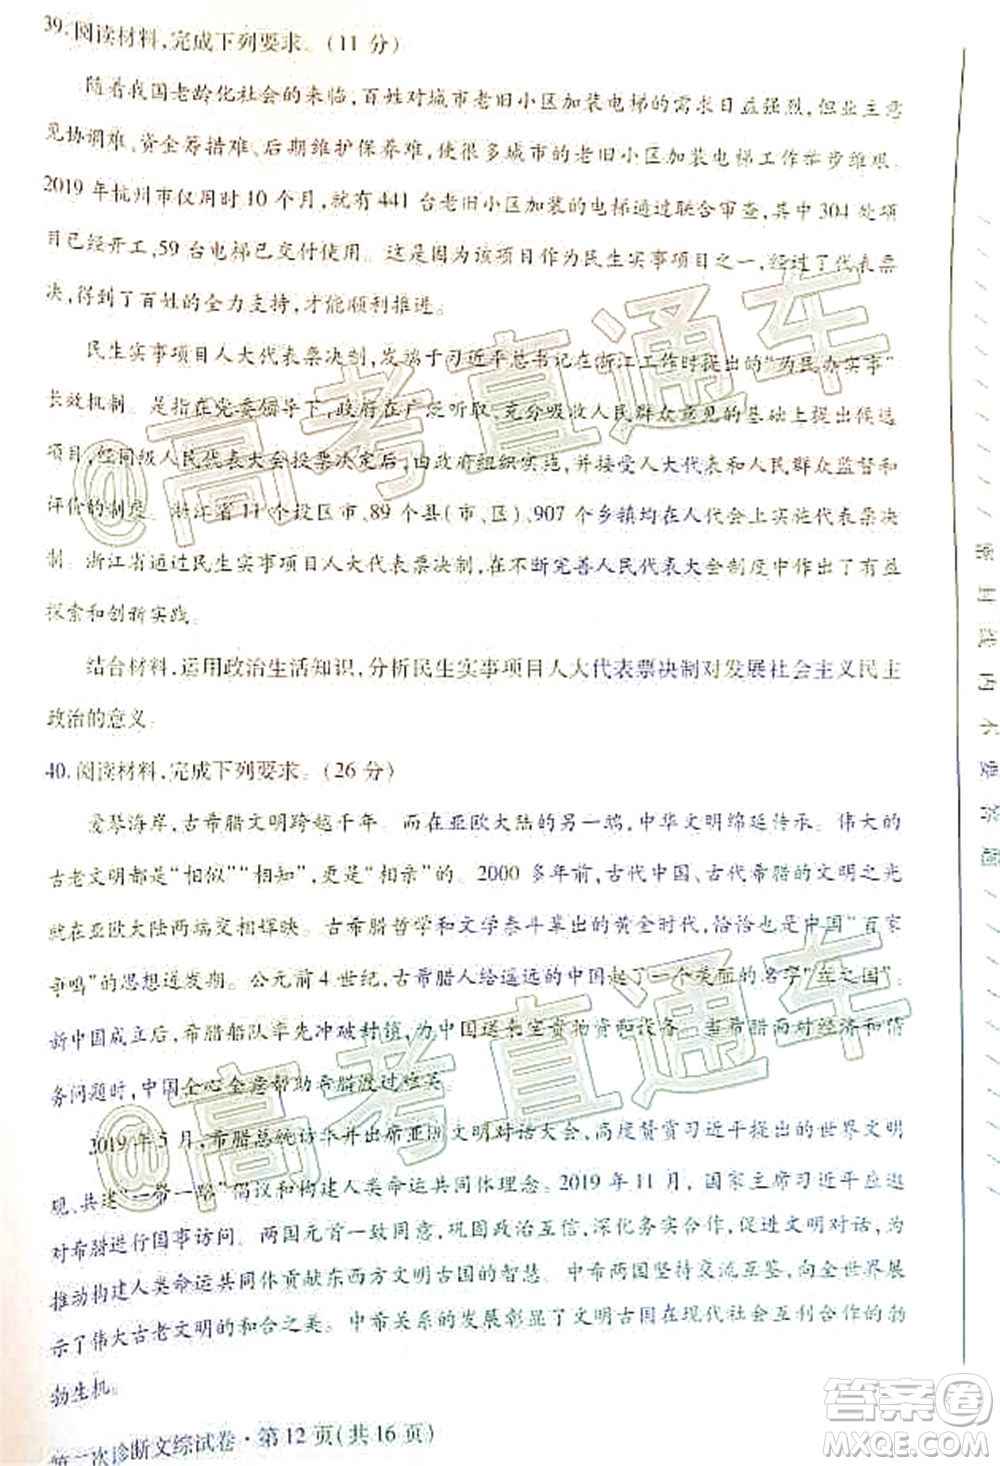 39. 阅读材料,完成下列要求。(11 分)
随着我国老龄化社会的来临,百姓对城市老旧小区加装电梯的需求日益强烈,但业主意
见协调难、资金筹措难、后期维护保养难,使很多城市的老旧小区加装电梯工作举步维艰。
2019 年杭州市仅用时 10 个月,就有 441 台老旧小区加装的电梯通过联合审查,其中 304 处项
目已经开工,59 台电梯已交付使用。这是因为该项目作为民生实事项目之一,经过了代表票
决,得到了百姓的全力支持,才能顺利推进。
民生实事项目人大代表票决制,发端于习近平总书记在浙江工作时提出的“为民办实事”
长效机制。是指在党委领导下,政府在广泛听取、充分吸收人民群众意见的基础上提出候选
项目,经同级人民代表大会投票决定后,由政府组织实施,并接受人大代表和人民群众监督和
评价的制度。浙江省 11 个设区市、89 个县(市、区)、907 个乡镇均在人代会上实施代表票决
制。浙江省通过民生实事项目人大代表票决制,在不断完善人民代表大会制度中作出了有益
探索和创新实践。
结合材料,运用政治生活知识,分析民生实事项目人大代表票决制对发展社会主义民主
政治的意义
40. 阅读材料,完成下列要求。(26 分)
爱琴海岸,古希腊文明跨越千年。而在亚欧大陆的另一端,中华文明绵延传承。伟大的
古老文明都是“相似”“相知”“相亲”的。2000 多年前,古代中国、古代希腊的文明之光
就在亚欧大陆两端交相辉映。古希腊哲学和文学泰斗辈出的黄金时代,恰恰也是中国“百家
争鸣”的思想迸发期。公元前 4 世纪,古希腊人给遥远的中国起了一个美丽的名字“丝之国”。
新中国成立后,希腊船队率先冲破封锁,为中国送来宝贵物资和设备。当希腊面对经济和债
务问题时,中国全心全意帮助希腊渡过难关。
2019 年 5 月,希腊总统访华并出席亚洲文明对话大会,高度赞赏习近平提出的世界文明
观、共建“一带一路”倡议和构建人类命运共同体理念。2019 年 11 月,国家主席习近平应邀
对希腊进行国事访问。两国元首一致同意,巩固政治互信,深化务实合作,促进文明对话,为
推动构建人类命运共同体贡献东西方文明古国的智慧。中希两国坚持交流互鉴,向全世界展
示了伟大古老文明的和合之美。中希关系的发展彰显了文明古国在现代社会互利合作的勃
勃生机。
次诊断文综试卷·第 12 页(共 16 页)
密封线内不要答题
@高考直通车
@高考直通车
答案卷
MXQE.COM